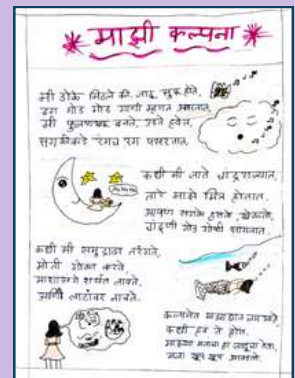 माझी कल्पना
मी डोळे मिटले की जादू सुरू होते,
ढग गोड गोड गाणी म्हणत असतात,
मी फुलपाखरू बनते, उडते हवेत,
सगळीकडे रंगच रंग पसरतात.
कधी मी जाते चांदराज्यात,
तारे माझे मित्र होतात,
आपण सगळे हसतो खेळतो,
चांदणी गोड गोष्टी सांगतात.
कधी मी समुद्रावर तरंगते,
मोती गोळा करते,
माशासंगे शर्यत लावते,
आणि लाटांवर नाचते.
कल्पनेत
कधी हव ते होत,
माझ्या मनाचा हा जादूचा खेळ,
मला खूप खूप आवडतो.